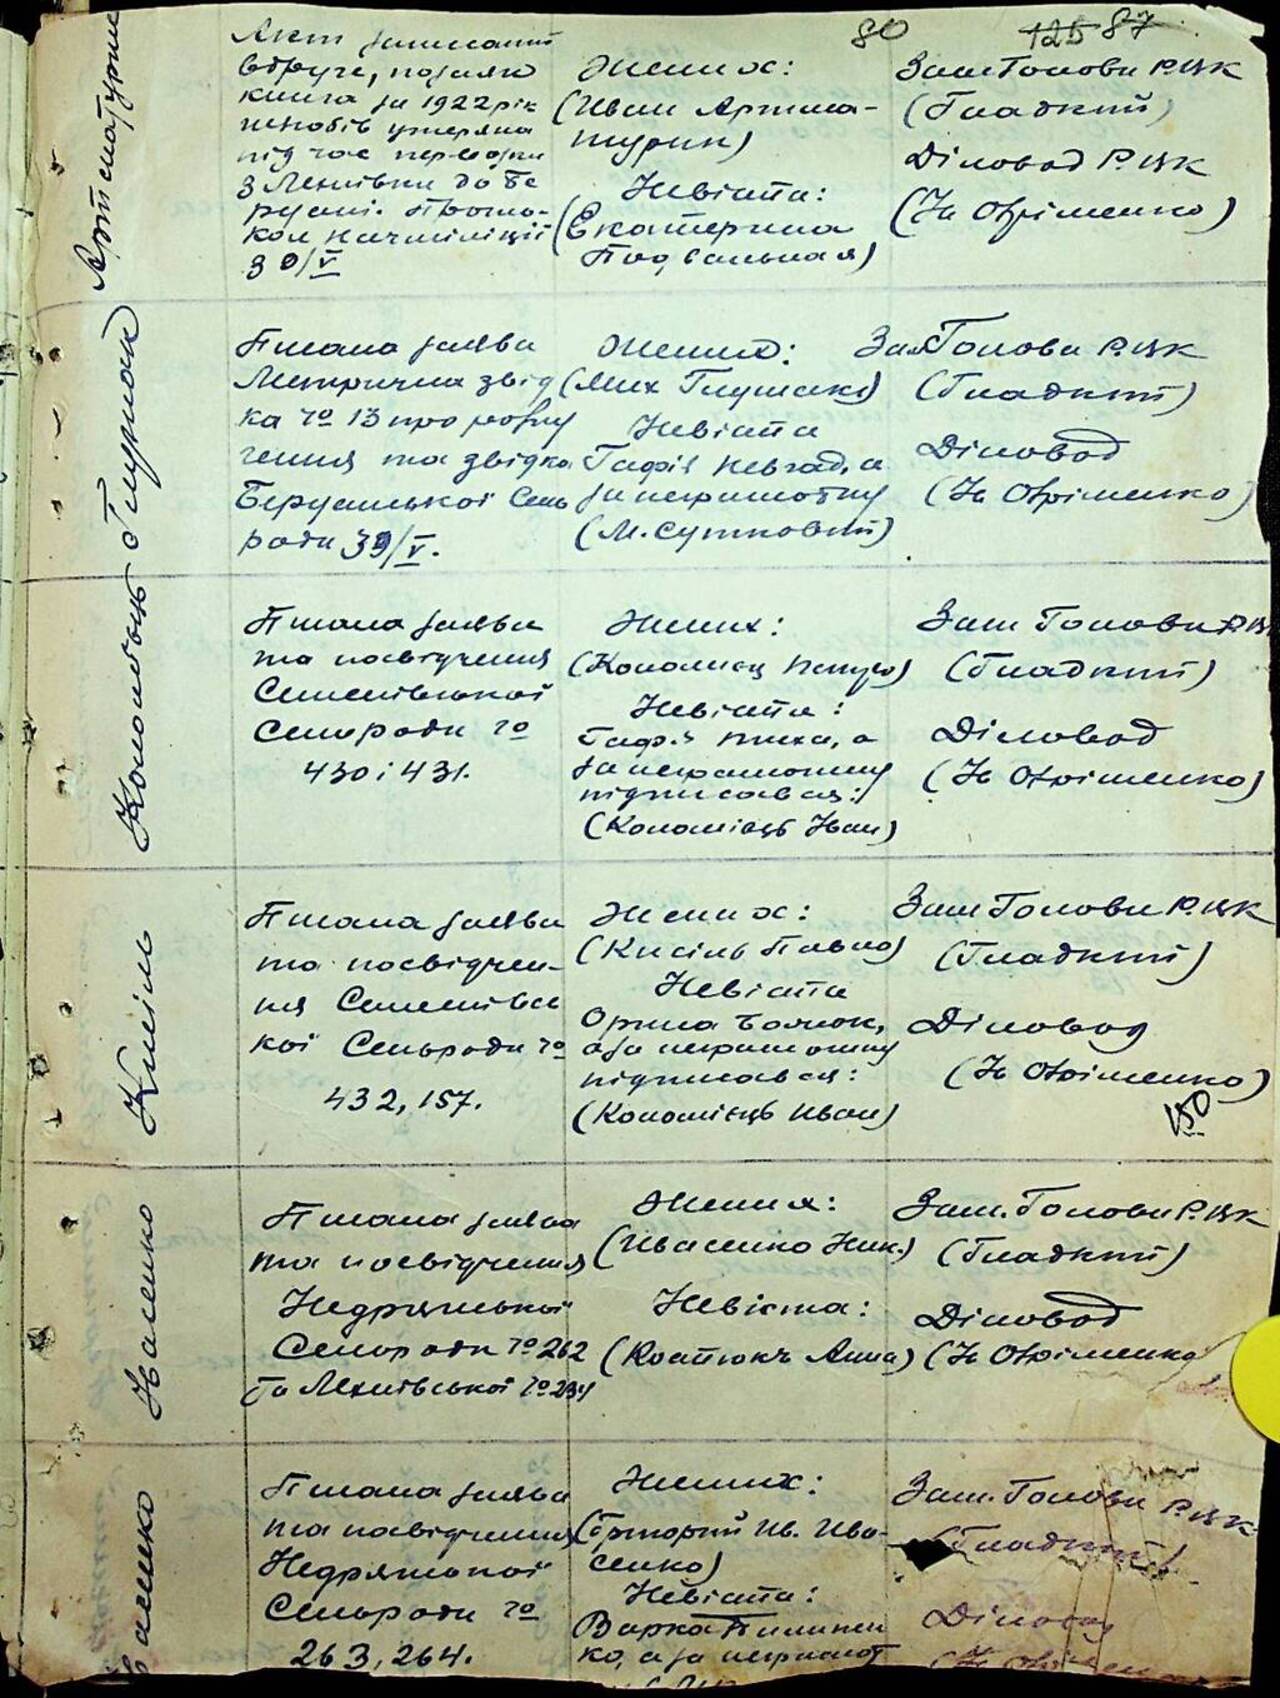 80 125 87
Артшатурин
Акт записаний
вдруге, позаяк
книга за 1922 рік
шлюбів утеряна
під час перевозки
з Лехнівки до Бе
резані. Прото-
кол начміліції
30/V
Жених:
(Иван Артша-
турин)
Невіста:
(Екатерина
Подвальная)
Заст Голови РВК
(Гладкий)
Діловод РВК
(Ів Охріменко)
Глушак
Писана заява
Метрична звід
ка № 13 про
чення та звідка
Сель
ради 39/V.
Жених:
(Мих Глушак)
Невіста
Гафія Невгад, а
за неграмотну
(М. Сутковий)
Зам Голови РВК
(Гладкий)
Діловод
(Ів Охріменко)
Коломієць
Писана заява
та посвідчення
Семенівської
Сельради №
430 і 431.
Жених:
(Коломиец Петро)
Невіста:
Гафія Тиха, а
за неграмотну
підписався:
(Коломієць Иван)
Заст Голови РВК
(Гладкий)
Діловод
(Ів Охріменко)
Кисіль
Писана заява
та посвідчен-
ня Семенівсь
кої Сельради №
432, 157.
Жених:
(Кисіль Павло)
Невіста
Орина
а за неграмотну
підписався:
(Коломієць Иван)
Заст Голови РВК
(Гладкий)
Діловод
(Ів Охріменко)
150
Писана заява
та посвідчення
Недрянської
Сельради № 262
та Лехнівської № 234
Жених:
(Ивасенко Ник.)
Невіста:
(Костюкъ Анна)
Заст. Голови РВК
(Гладкий)
Діловод
(Ів Охріменко)
Писана заява
та посвідчення
Недрянської
Сельради №
263, 264.
Жених:
(Григорий Ив. Ива-
сенко)
Невіста:
Варка Пилипен
ко, а за неграмот
Заст. Голови РВК
(Гладкий)
Діловод
(Ів Охріменко